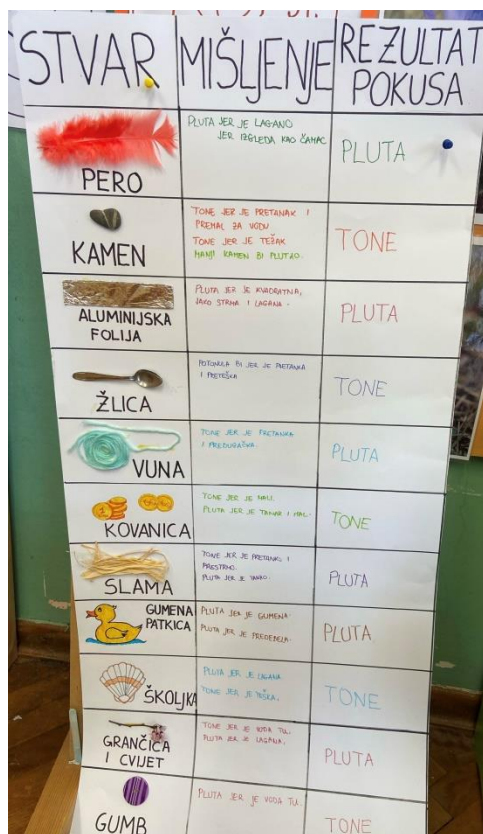 STVAR
MIŠLJENJE
REZULTAT
POKUSA
PERO
PLUTA JER JE LAGANO
JER IZGLEDA KAO ČAMAC
PLUTA
KAMEN
TONE JER JE PRETANAK I
PREMAL ZA VODU
TONE JER JE TEŽAK
MANJI KAMEN BI PLUTAO.
TONE
ALUMINIJSKA
FOLIJA
PLUTA JER JE KVADRATNA,
JAKO STRMA I LAGANA.
PLUTA
ŽLICA
POTONULA BI JER JE PRETANKA
I PRETEŠKA
TONE
VUNA
TONE JER JE PRETANKA
I PREDUGAČKA.
PLUTA
KOVANICA
TONE JER JE MALI.
PLUTA JER JE TANAK I MAL.
TONE
SLAMA
TONE JER JE PRETANKO I
PRESTRMO.
PLUTA JER JE TANKO.
PLUTA
GUMENA
PATKICA
PLUTA JER JE GUMENA.
PLUTA JER JE PREDEBELA.
PLUTA
ŠKOLJKA
PLUTA JER JE LAGANA
TONE JER JE TEŠKA.
TONE
GRANČICA
I CVIJET
TONE JER JE VODA TU.
PLUTA JER JE LAGANA.
PLUTA
GUMB
PLUTA JER JE VODA TU.
TONE